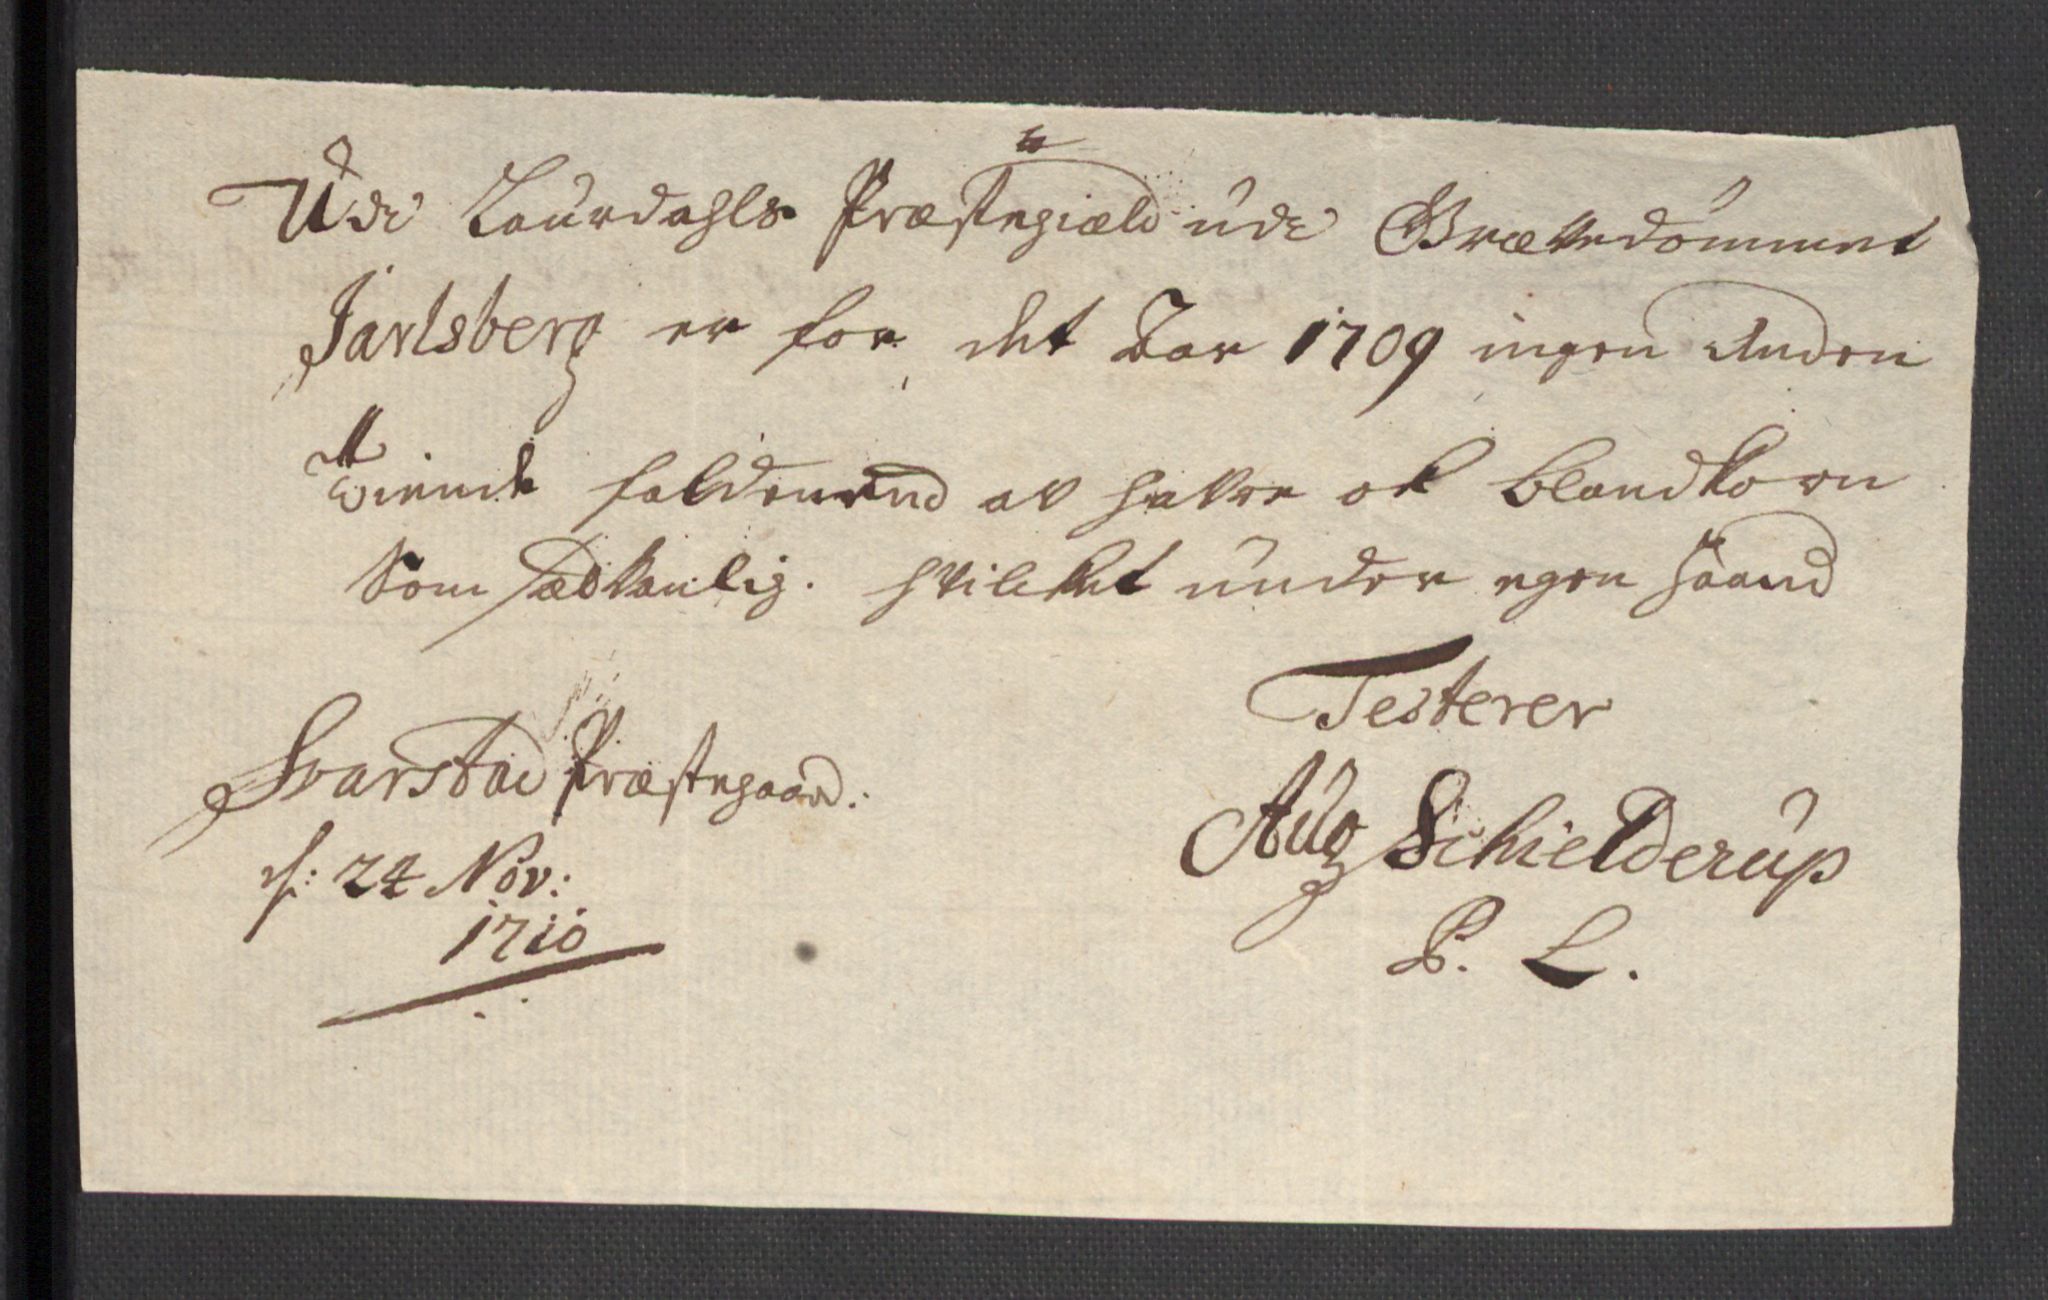 Udi Laurdahls Præstegiæld udi Grævedommet
Jarlsberg er for det Aar 1709 ingen Anden
Tiende falden end av Havre ok Blandkorn
Som sædvanlig. Hvilket under egen Haand
Testerer
Svarstad Præstegaard.
d: 24 Nov:
1710
Aug Schielderup
P. L.